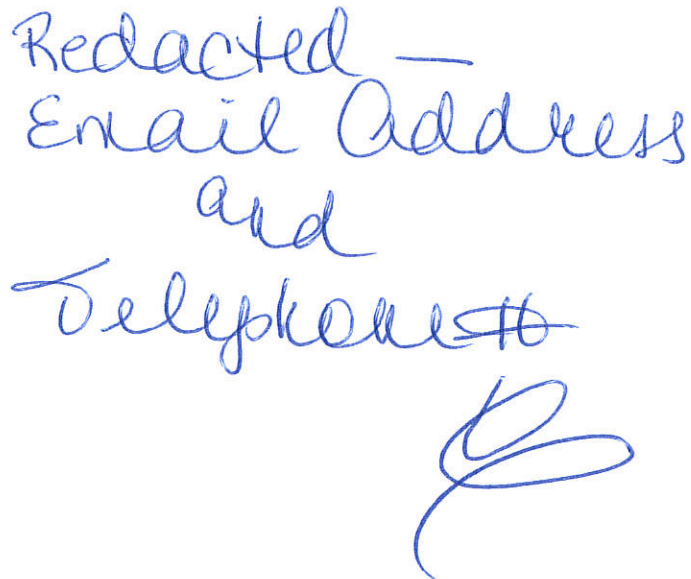 Redacted —
Email Address
and
Telephone #